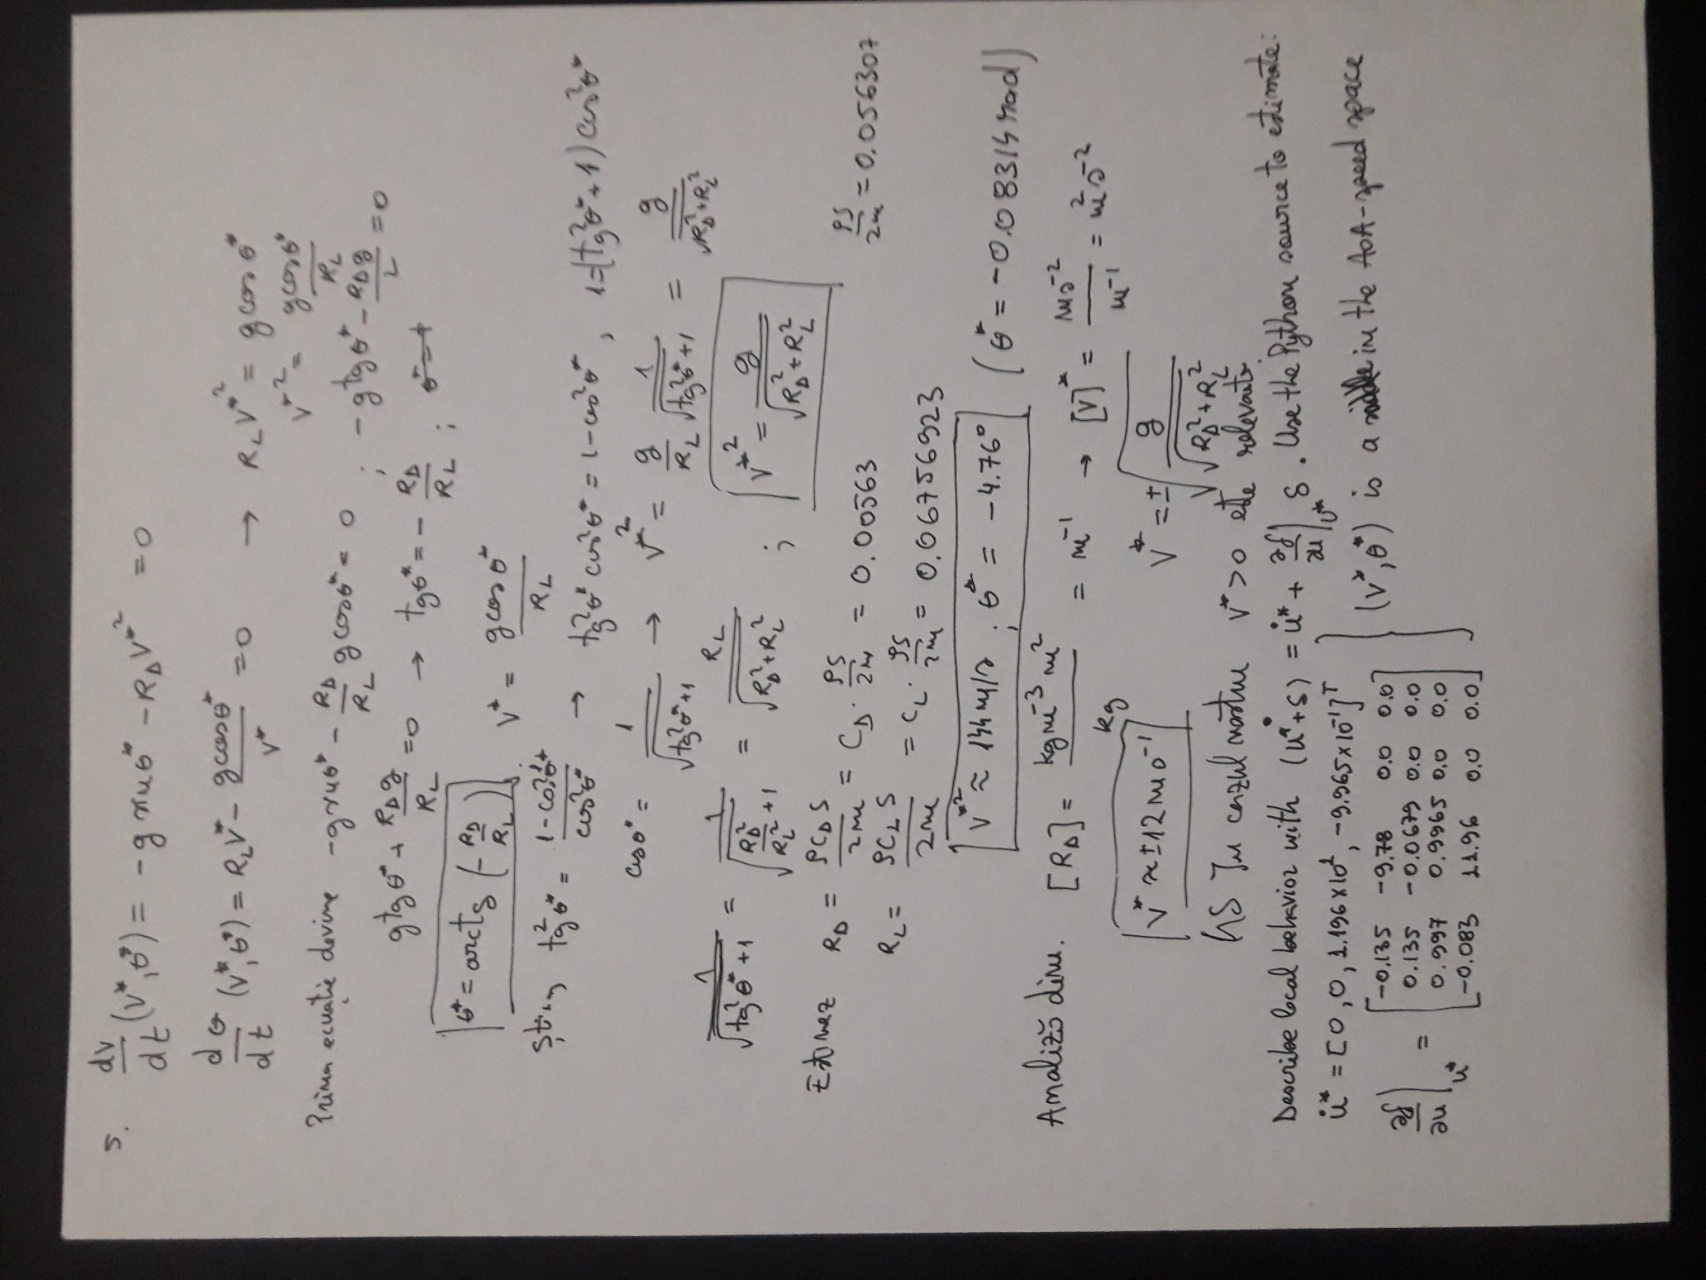 5. dv/dt (v*, θ*) = -g sinθ* - R_D v*² = 0
dθ/dt (v*, θ*) = R_L v* - gcosθ*/v* = 0 → R_L v*² = g cosθ*
v*² = gcosθ*/R_L
Prima ecuație devine -gsinθ* - R_D/R_L gcosθ* = 0 ; -gtgθ* - R_D g/L = 0
gtgθ* + R_D g/R_L = 0 → tgθ* = - R_D/R_L ;
θ* = arctg(- R_D/R_L) ; v* = gcosθ*/R_L
Știm tg²θ* = 1-cos²θ*/cos²θ* → tg²θ* cos²θ* = 1-cos²θ* , 1=(tg²θ*+1)cos²θ*
cosθ* = 1/√(tg²θ*+1) → v*² = g/R_L 1/√(tg²θ*+1) = g/√(R_D²+R_L²)
1/√(tg²θ*+1) = 1/√(R_D²/R_L²+1) = R_L/√(R_D²+R_L²) ; v*² = g/√(R_D²+R_L²)
Estimez R_D = ρC_D S/2m = C_D · ρS/2m = 0.00563
ρS/2m = 0.056307
R_L = ρC_L S/2m = C_L · ρS/2m = 0.06756923
v*² ≈ 144 m/s ; θ* = -4.76° (θ* = -0.08314 rad)
Analiză dim. [R_D] = kgm⁻³m²/kg = m⁻¹ → [v]* = ms⁻²/m⁻¹ = m²s⁻²
v* ≈ ±12 ms⁻¹ v* = ± √(g/√(R_D²+R_L²))
În cazul nostru v* > 0 este relevantă
Describe local behavior with (u*+δ) = u̇* + ∂f/∂u|_u* δ. Use the Python source to estimate:
u̇* = [0, 0, 1.196x10¹, -9.965x10⁻¹]ᵀ
∂f/∂u|_u* = [-0.135 -9.78 0.0 0.0
0.135 -0.0679 0.0 0.0
0.997 0.9965 0.0 0.0
-0.083 11.96 0.0 0.0]
(v*, θ*) is a in the AoA-speed space